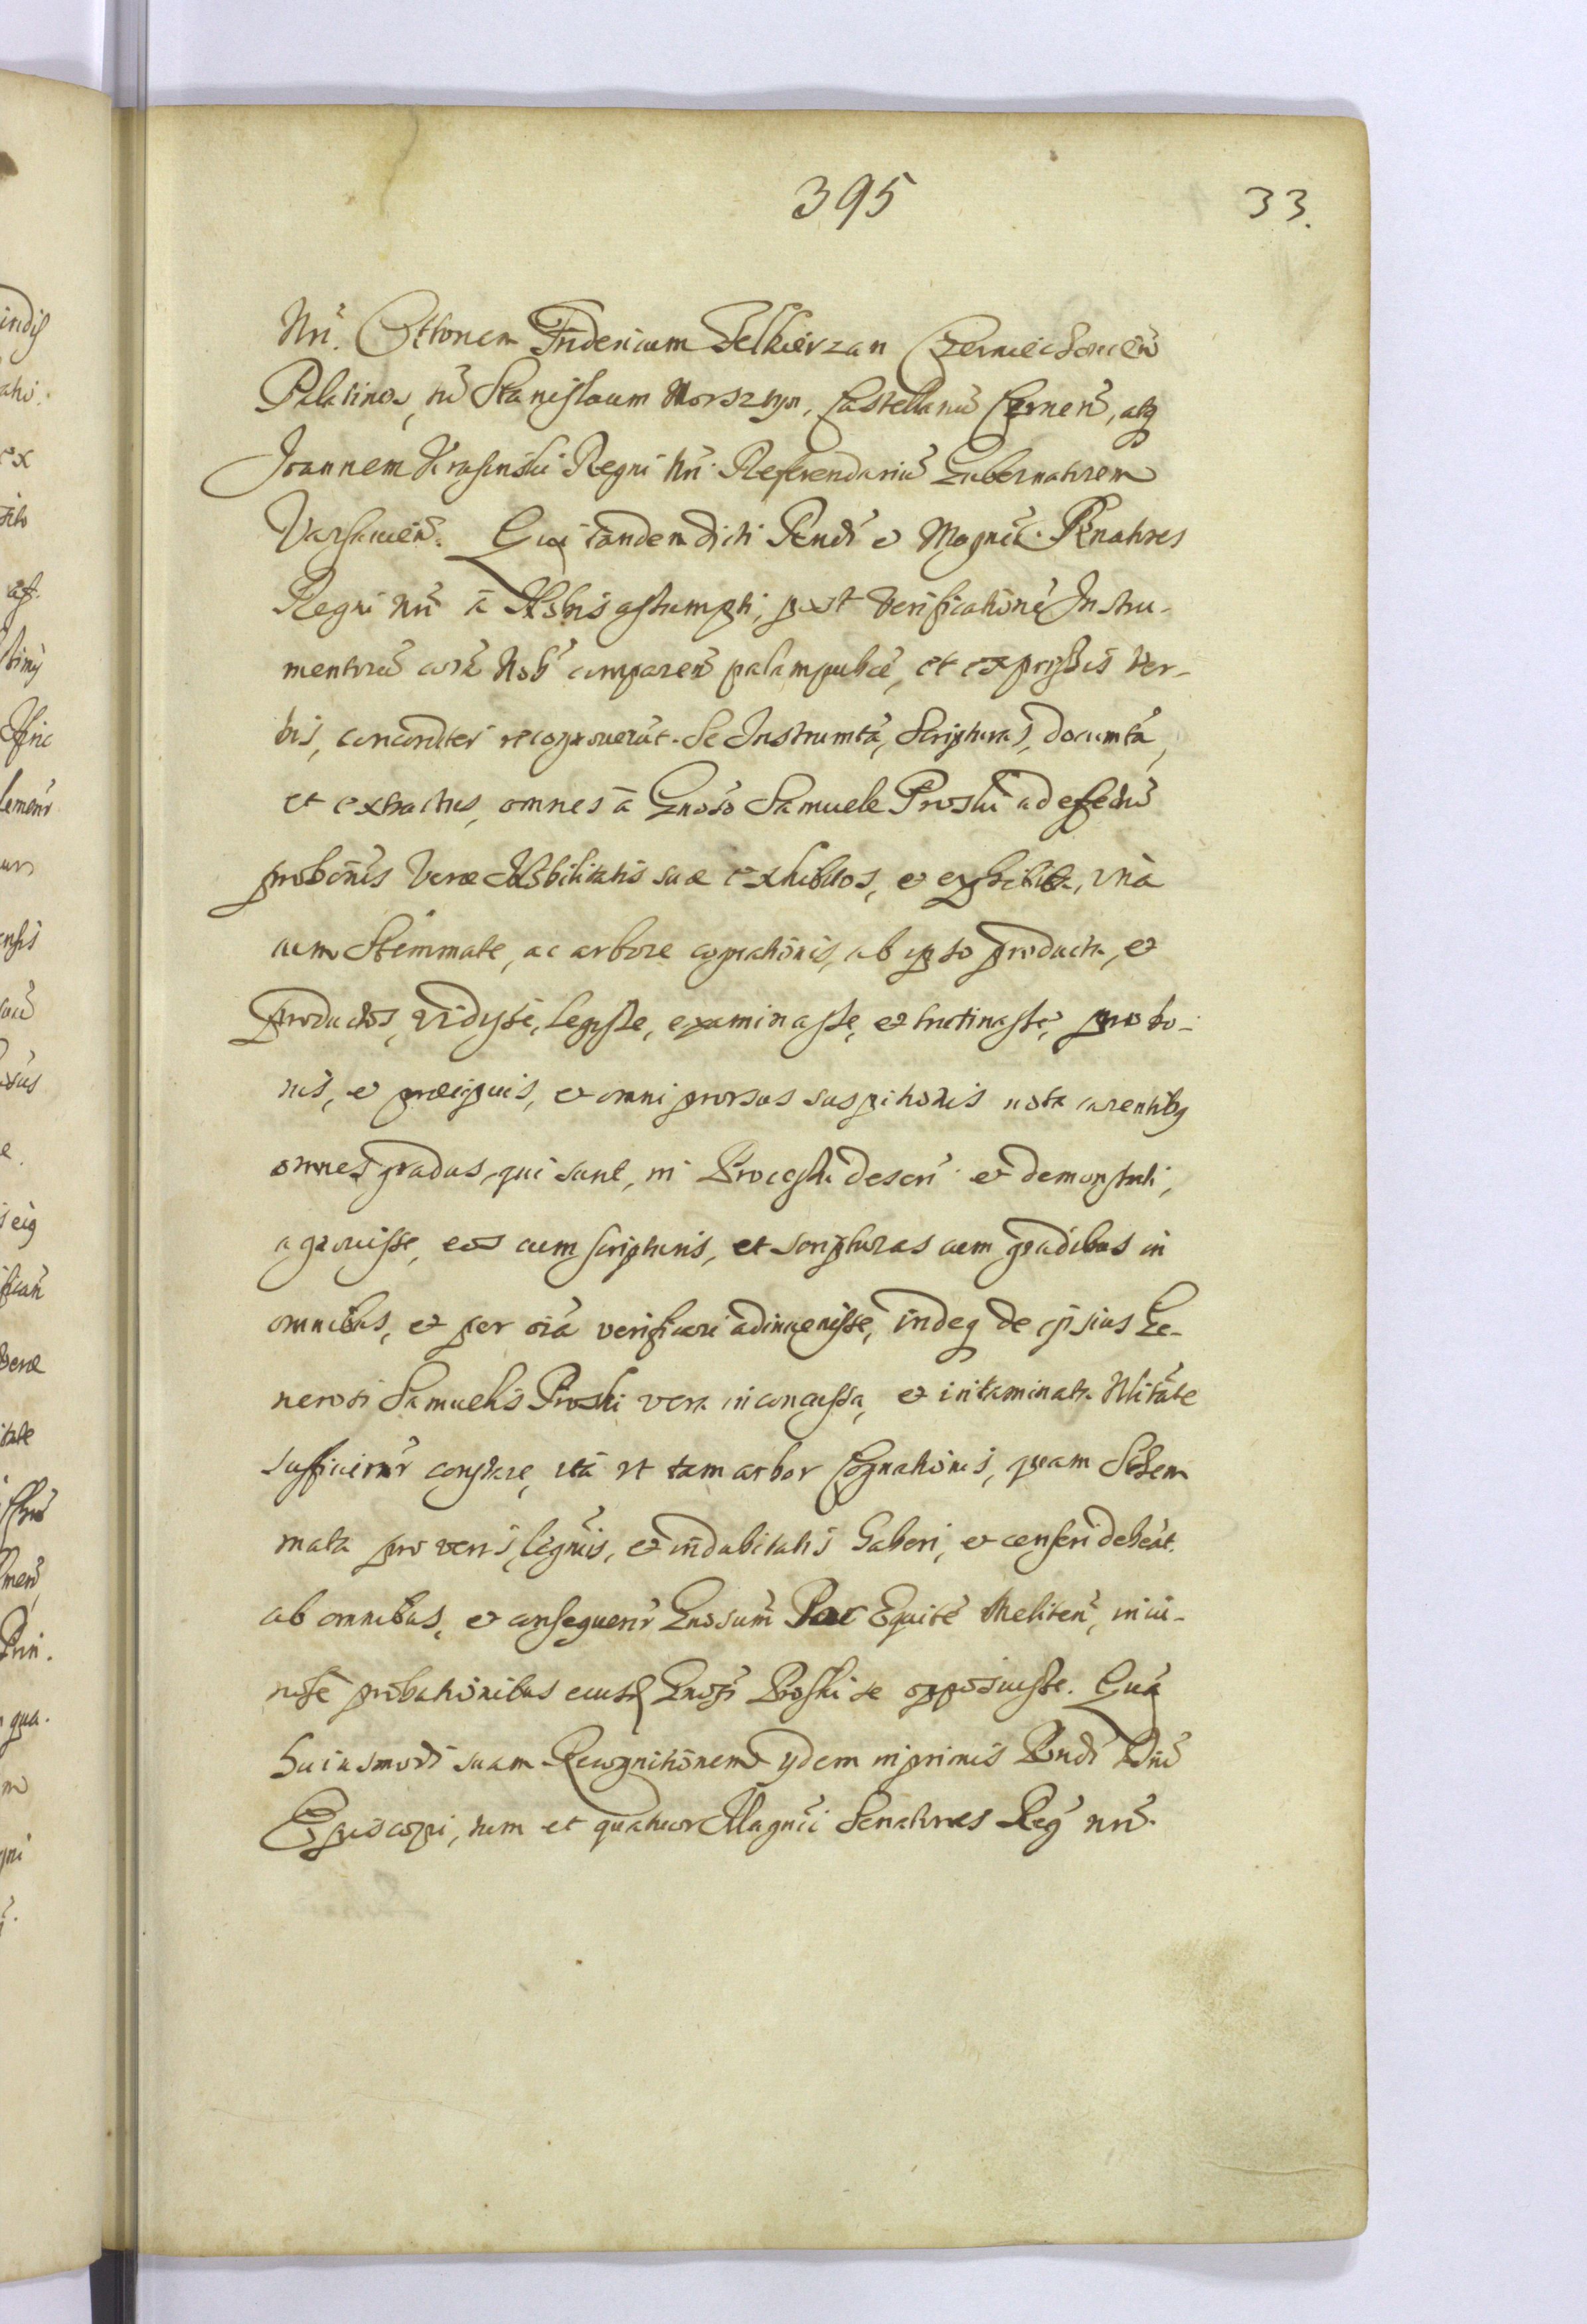 395
33.
Nri. Ottonem Fridericum Felkierzan Czerniechovień
Palatinos, tũ Stanislaum Morsztyn, Castellanũ Czernen̄, atq
Joannem Krasinski Regni Nri. Referendariũ Gubernatorem
Varsavien̄. Qui tandem dicti Rendi et Magnci. Senatores
Regni Nri à Nobis assumpti, post verificationẽ Instru-
mentorũ corã Nob̃ comparen̄ palam publcẽ, et expressis ver-
bis, concorditer recognoverũt. Se Instrumta, Scripturas, documta,
et extractus, omnes à Gnoso Samuele Proski ad effectũ
probonis Veræ Nobilitatis suæ exhibitos, et exhibita, unà
cum Stemmate, ac arbore cognationis, ab ipso producta, et
productos, vidisse, legisse, examinasse, et trutinasse, pro bo-
nis, et præcipuis, et omni prorsus suspitionis nota carentibq
omnes gradus, qui sunt, in Processu descri. et demonstrati,
agnovisse, eos cum scripturis, et scripturas cum gradibus in
omnibus, et per oia verificari adinvenisse, indeq de ipsius Ge-
nerosi Samuelis Proski vera inconcussa, et intaminata Nlitate
sufficienr constare, ità ut tam arbor Cognationis, quam Stem
mata pro veris, legmis, et indubitatis haberi, et censeri debeãt.
ab omnibus, et consequenr Gnosum Pac Equitẽ Meliten̄, iniu-
riosẽ probationibus eiusd Gnosi Proski se opposuisse. Quã
huiusmodi suam Recognitionem ijdem inprimis Rndi Dni
Episcopi, tum et quatuor Magnci Senatores Reg̃ nri.